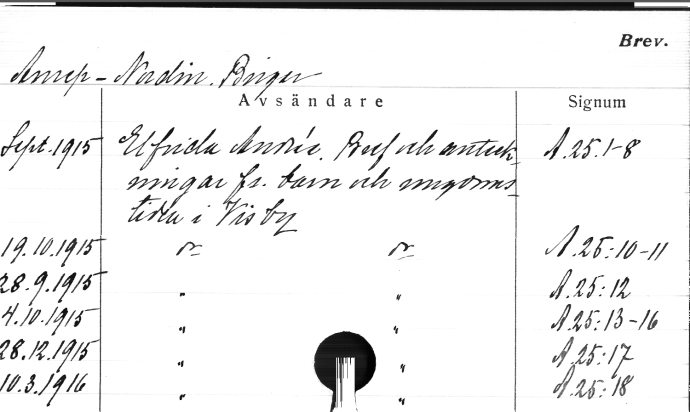 Brev.
Anrep-Nordin. Birger
Avsändare Signum
Sept. 1915 Elfrida Andrée. Bref och anteck- A.25.1-8
ningar fr. barn och ungdoms-
tiden i Visby
19.10.1915 do do A.25:10-11
28.9.1915 " " A.25:12
4.10.1915 " " A.25:13-16
28.12.1915 " " A.25:17
10.3.1916 " " A.25:18